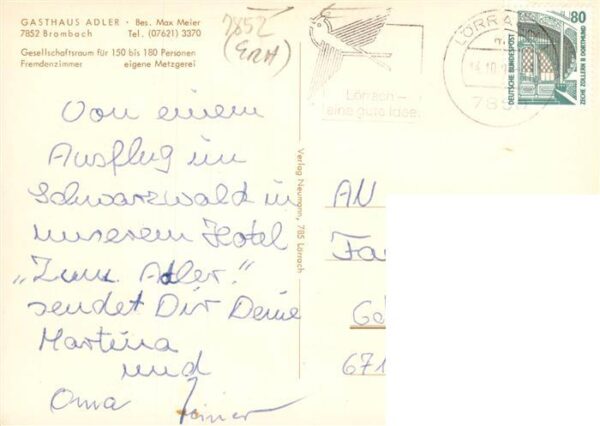 GASTHAUS ADLER · Bes. Max Meier
7852 Brombach Tel. (07621) 3370
Gesellschaftsraum für 150 bis 180 Personen
Fremdenzimmer eigene Metzgerei
7852
Lörrach –
eine gute Idee.
LÖRRA
80
DEUTSCHE BUNDESPOST
ZECHE ZOLLERN II DORTMUND
Von einem
Ausflug im
Schwarzwald in
unserem Hotel
„Zum Adler."
sendet Dir Deine
Martina
und
Oma
Verlag Neumann, 785 Lörrach
AN
Fa
Ge
671